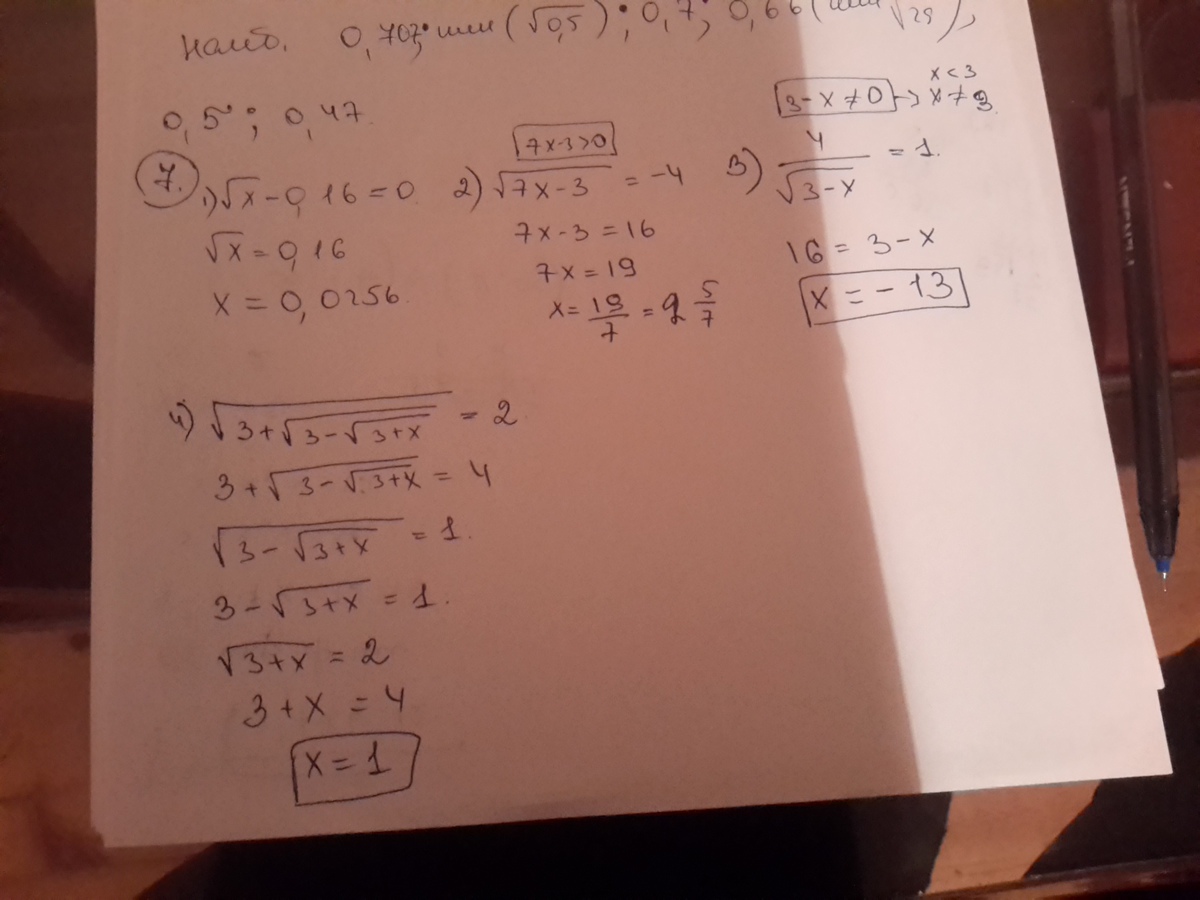 наиб. 0,707; или (√0,5); 0,7; 0,66 (или √29),
0,5; 0,47
7. 1) √x - 0,16 = 0
√x = 0,16
x = 0,0256
7x-3>0
2) √(7x-3) = -4
7x-3 = 16
7x = 19
x = 19/7 = 2 5/7
3-x≠0 → x<3
x≠3
3) 4/√(3-x) = 1.
16 = 3-x
x = -13
4) √(3+√(3-√(3+x))) = 2
3+√(3-√(3+x)) = 4
√(3-√(3+x)) = 1.
3-√(3+x) = 1.
√(3+x) = 2
3+x = 4
x = 1